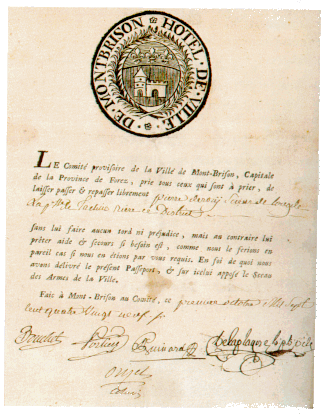 HOTEL · DE · VILLE · DE · MONTBRISON
LE Comité provisoire de la Ville de Mont-Brison, Capitale
de la Province de Forez, prie tous ceux qui sont à prier, de
laisser passer & repasser librement pierre
sans lui faire aucun tord ni préjudice, mais au contraire lui
prêter aide & secours si besoin est, comme nous le ferions en
pareil cas si nous en étions par vous requis. En foi de quoi nous
avons délivré le présent Passeport, & sur icelui apposé le Sceau
des Armes de la Ville.
Fait à Mont-Brison au Comité, ce premier octobre mil sept
cent quatre vingt neuf